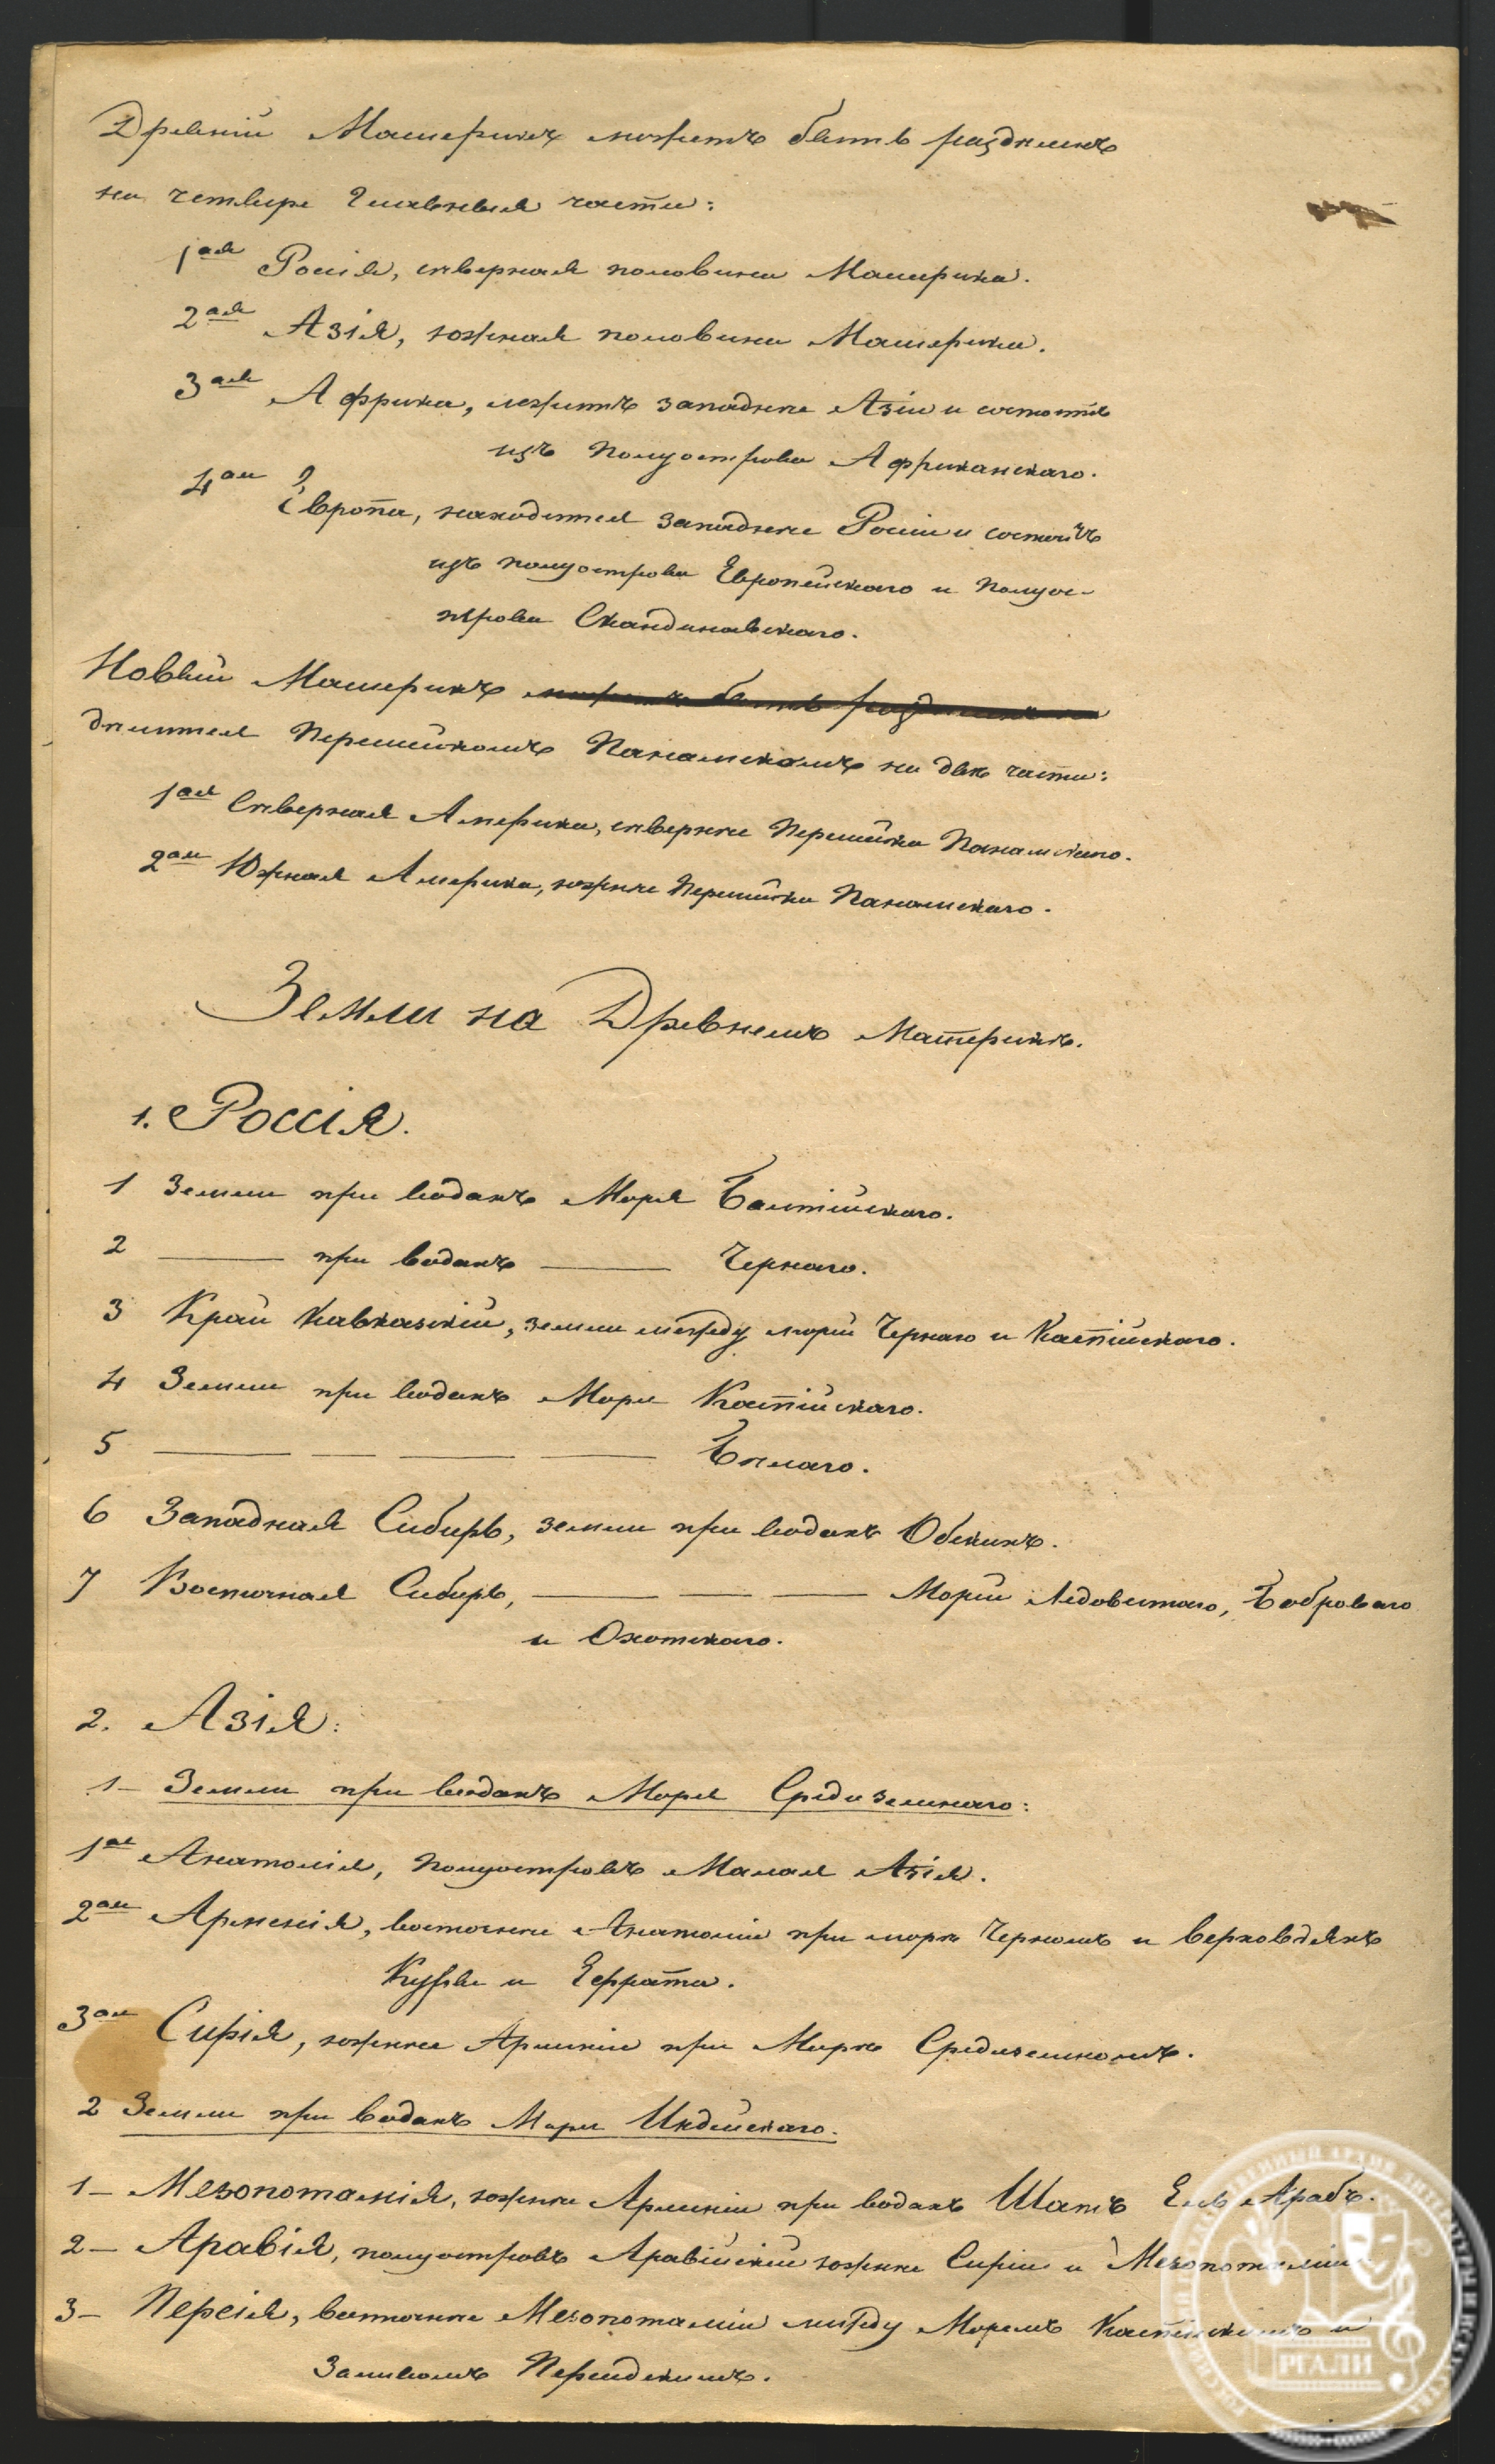 Древній Материкъ можетъ быть раздѣленъ
на четыре главныя части:
1ая Россія, сѣверная половина Материка.
2ая Азія, южная половина Материка.
3ая Африка, лежитъ западнѣе Азіи и состоитъ
изъ полуострова Африканскаго.
4ая Европа, находится западнѣе Россіи и состоитъ
изъ полуострова Европейскаго и Полуос-
трова Скандинавскаго.
Новый Материкъ можетъ быть раздѣленъ на
дѣлится Перешейкомъ Панамскомъ на двѣ части:
1ая Сѣверная Америка, сѣвернѣе Перешейка Панамскаго.
2ая Южная Америка, южнѣе Перешейка Панамскаго.
Земли на Древнемъ Материкѣ.
1. Россія.
1 Земли при водахъ Моря Балтійскаго.
2 —— при водахъ —— Чернаго.
3 Край Кавказскій, земли между морей Чернаго и Каспійскаго.
4 Земли при водахъ Моря Каспійскаго.
5 —— — —— —— Бѣлаго.
6 Западная Сибирь, земли при водахъ Обскихъ.
7 Восточная Сибирь, —— — —— Морей Ледовитаго, Боброваго
и Охотскаго.
2. Азія:
1– Земли при водахъ Моря Средиземнаго:
1ая Анатолія, Полуостровъ Малая Азія.
2ая Арменія, восточнѣе Анатоліи при морѣ Черномъ и верховьяхъ
Куры и Ефрата.
3ая Сирія, южнѣе Арменіи при Морѣ Средиземномъ.
2 Земли при водахъ Моря Индейскаго.
1– Мезопотамія, южнѣе Арменіи при водахъ Шатъ Ель Арабъ.
2– Аравія, полуостровъ Аравійскій южнѣе Сиріи и Мезопотаміи
3– Персія, восточнѣе Мезопотаміи между Моремъ Каспійскимъ и
Заливомъ Персидскимъ.
РГАЛИ